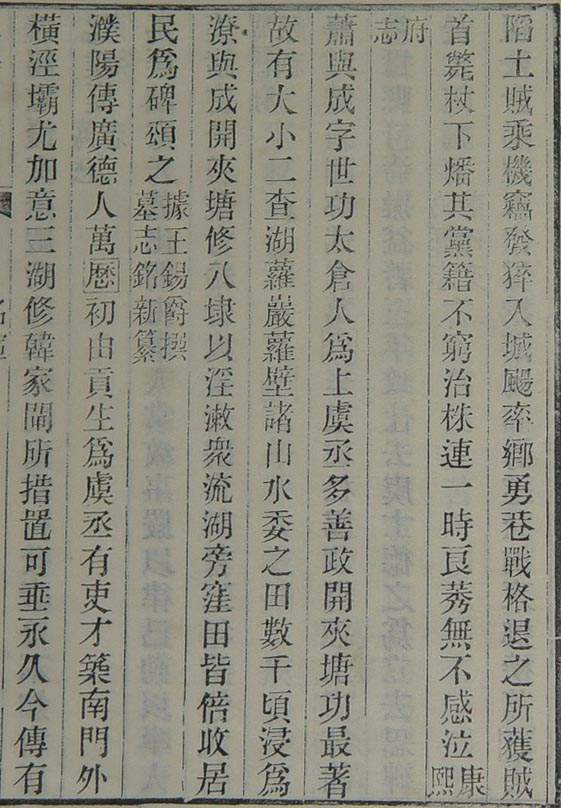 陷土賊乘機竊發猝入城颺率鄉勇巷戰格退之所獲賊
首斃杖下燔其黨籍不窮治株連一時良莠無不感泣康熙
府志
蕭與成字世功太倉人爲上虞丞多善政開夾塘功最著
故有大小二查湖蘿巖蘿壁諸山水委之田數千頃浸爲
潦與成開夾塘修八埭以淫漱衆流湖旁窪田皆倍收居
民爲碑頌之據王錫爵撰墓志銘新纂
濮陽傳廣德人萬曆初由貢生爲虞丞有吏才築南門外
橫涇壩尤加意三湖修韓家閘所措置可垂永久今傳有